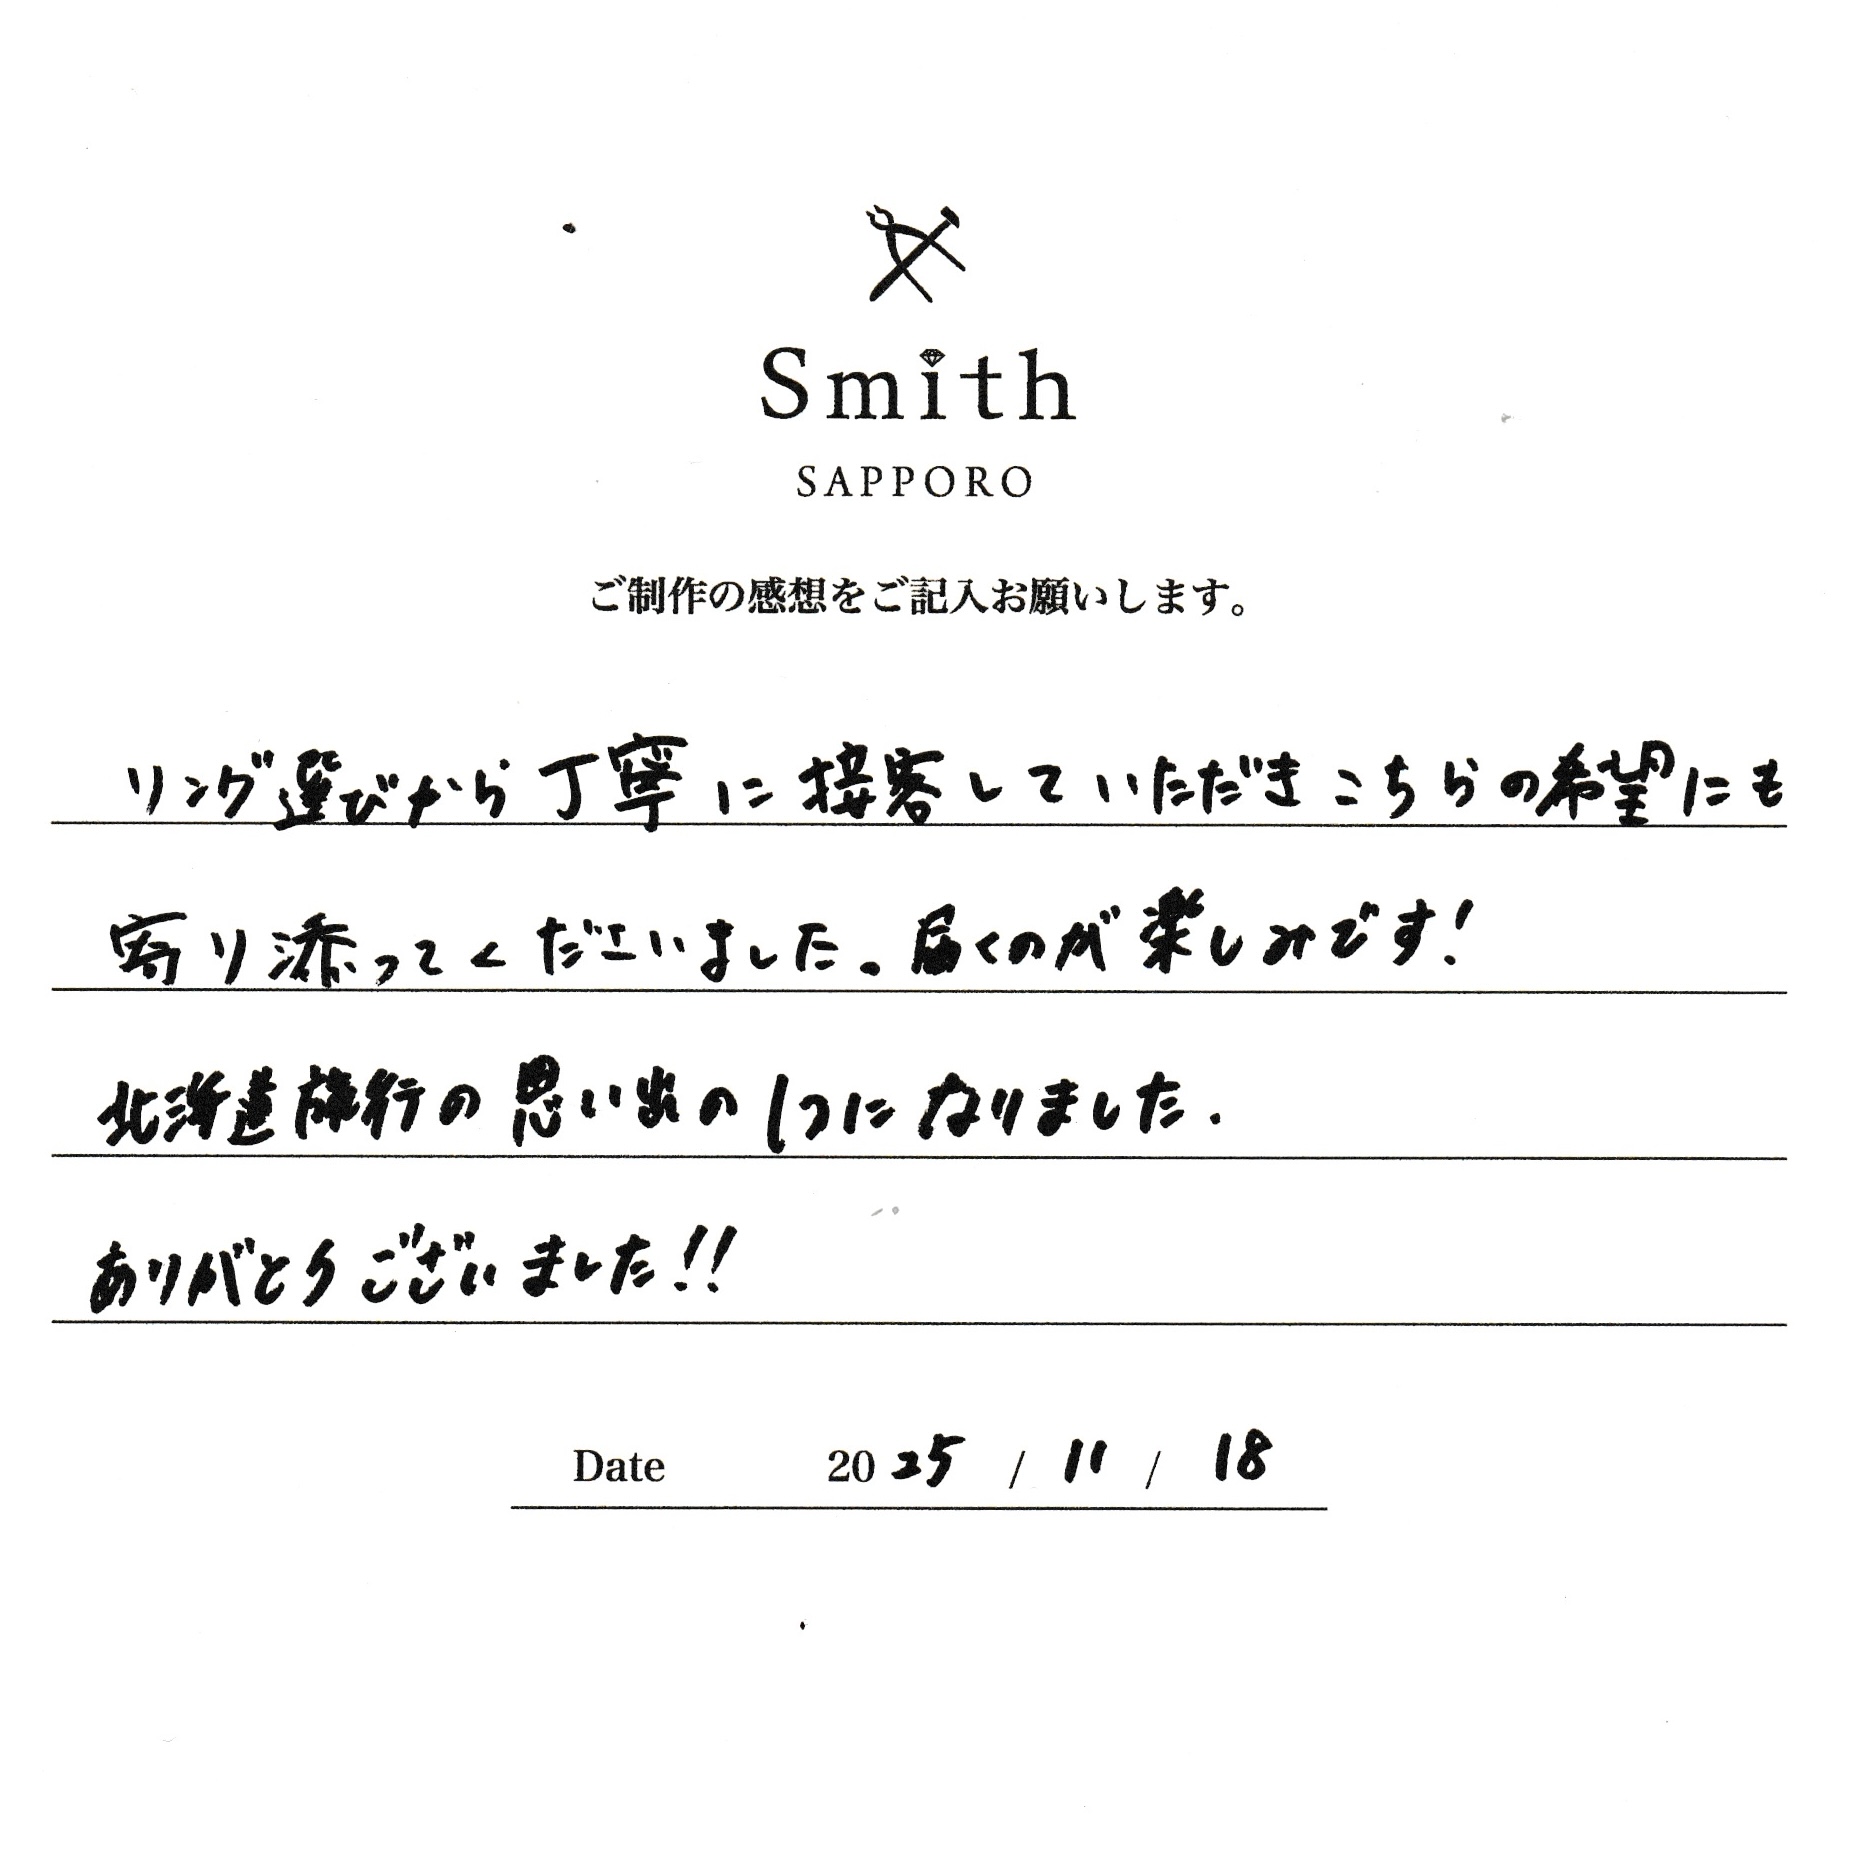 Smith
SAPPORO
ご制作の感想をご記入お願いします。
リング選びから丁寧に接客していただきこちらの希望にも
寄り添ってくださいました。届くのが楽しみです!
北海道旅行の思い出の1つになりました.
ありがとうございました!!
Date 2025 / 11 / 18